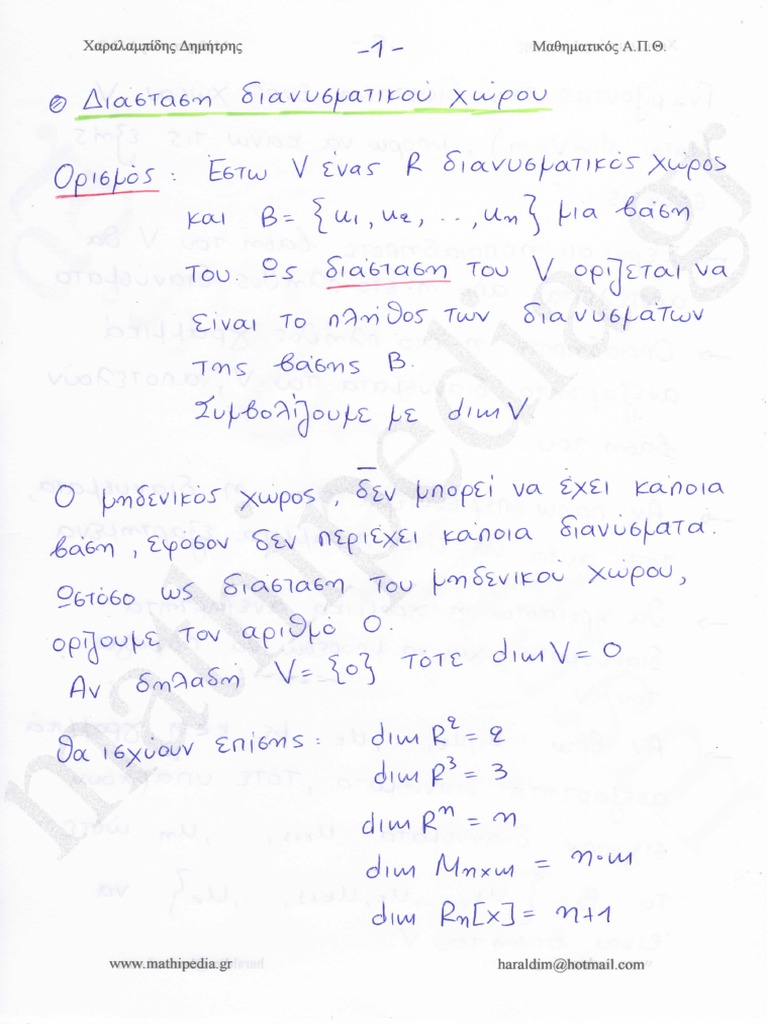 Χαραλαμπίδης Δημήτρης -1- Μαθηματικός Α.Π.Θ.
Διάσταση διανυσματικού χώρου
Ορισμός: Έστω V ένας R διανυσματικός χώρος
και B = {u1, u2, ..., un} μια βάση
του. Ως διάσταση του V ορίζεται να
είναι το πλήθος των διανυσμάτων
της βάσης B.
Συμβολίζουμε με dim V
Ο μηδενικός χώρος, δεν μπορεί να έχει κάποια
βάση, εφόσον δεν περιέχει κάποια διανύσματα.
Ωστόσο ως διάσταση του μηδενικού χώρου,
ορίζουμε τον αριθμό 0.
Αν δηλαδή V = {0} τότε dim V = 0
Θα ισχύουν επίσης: dim R² = 2
dim R³ = 3
dim Rⁿ = n
dim Mnxm = n·m
dim Rn[x] = n+1
www.mathipedia.gr haraldim@hotmail.com
mathipedia.gr